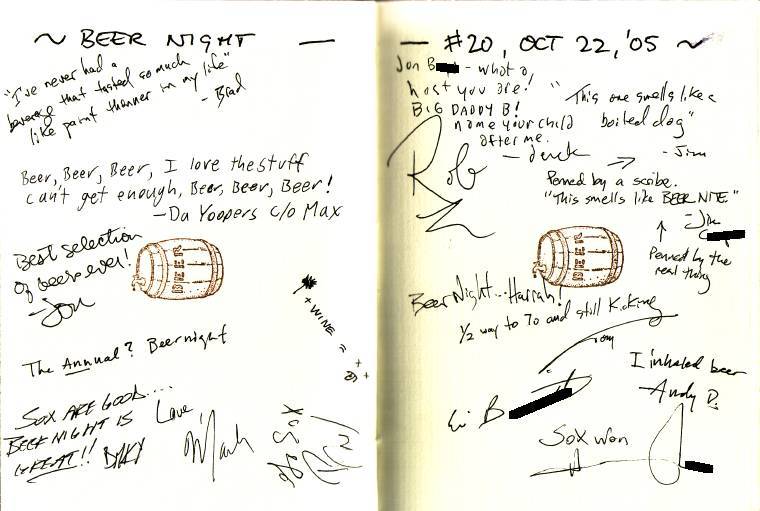 ~ BEER NIGHT —
"I've never had a
beverage that tasted so much
like paint thanner in my life"
- Brad
Beer, Beer, Beer, I love the stuff
can't get enough, Beer, Beer, Beer!
- Da Yoopers c/o Max
Best selection
of beers ever!
- Jon
BEER
+ WINE =
The Annual? Beernight
SOX ARE GOOD....
BEER NIGHT IS
GREAT!!
Love,
Mark
— #20, OCT 22, '05 ~
Jon B - what a
host you are!
BIG DADDY B!
name your child
after me.
- derek
"This one smells like a
boiled dog"
- Jim
Penned by a scribe.
"This smells like BEER NITE."
- Jim
Penned by the
real thing
Rob
BEER
Beer Night... Hurrah!
1/2 way to 70 and still Kicking
Tom
I inhaled beer
Andy D.
Eric B
Sox won